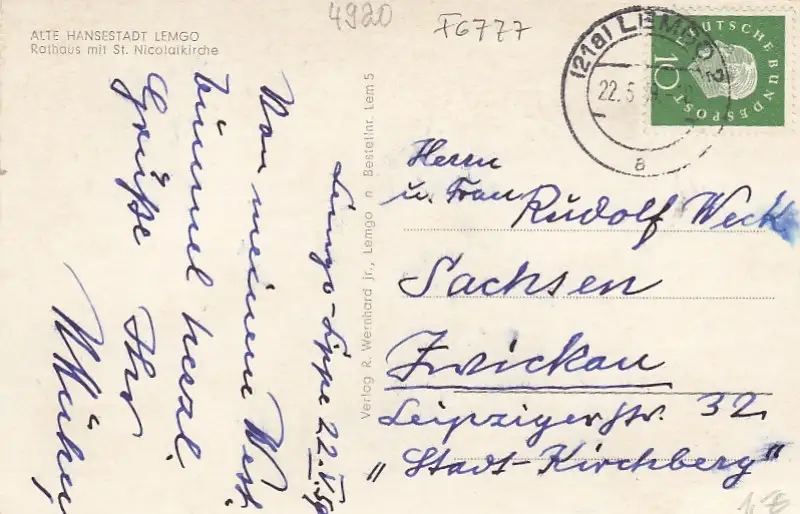 ALTE HANSESTADT LEMGO
Rathaus mit St. Nicolaikirche
4920
F6777
(21a) LEMGO 2
22.5.59
a
DEUTSCHE BUNDESPOST
10
Lemgo-Lippe 22.V.59
Von meinem West-
bümmel herzl.
Grüße Ihr
Verlag R. Wernhard jr., Lemgo n Bestellnr. Lem 5
Herrn
u. Frau Rudolf Weck
Sachsen
Zwickau
Leipzigerstr. 32
"Stadt-Kirchberg"